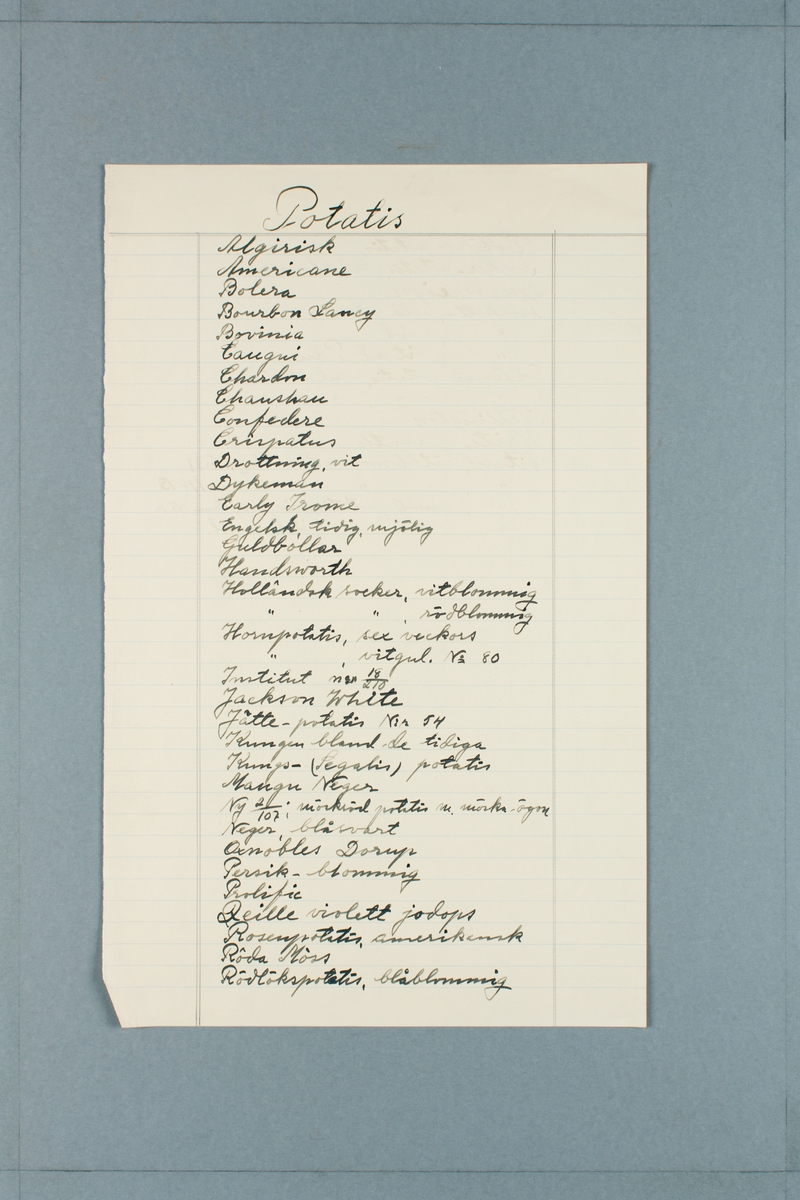 Potatis
Algirisk
Americane
Bolera
Bourbon Lancy
Bovinia
Caugui
Chardon
Chaushau
Confedere
Crispatus
Drottning, vit
Dykeman
Early Irome
Engelsk, tidig, mjölig
Guldbollar
Handsworth
Holländsk socker, vitblommig
" " , rödblommig
Hornpotatis, sex veckors
" , vitgul. No 80
Institut n:r 18/210
Jackson White
Jätte-potatis N:r 54
Kungen bland de tidiga
Kungs- (Regalis) potatis
Maugu Neger
Ny 2/107; mörkröd potatis m. mörka ögon
Neger, blåsvart
Dorup
Persik-blommig
Prolific
Reille violett jodops
Rosenpotatis, amerikansk
Röda Möss
Rödlökspotatis, blåblommig